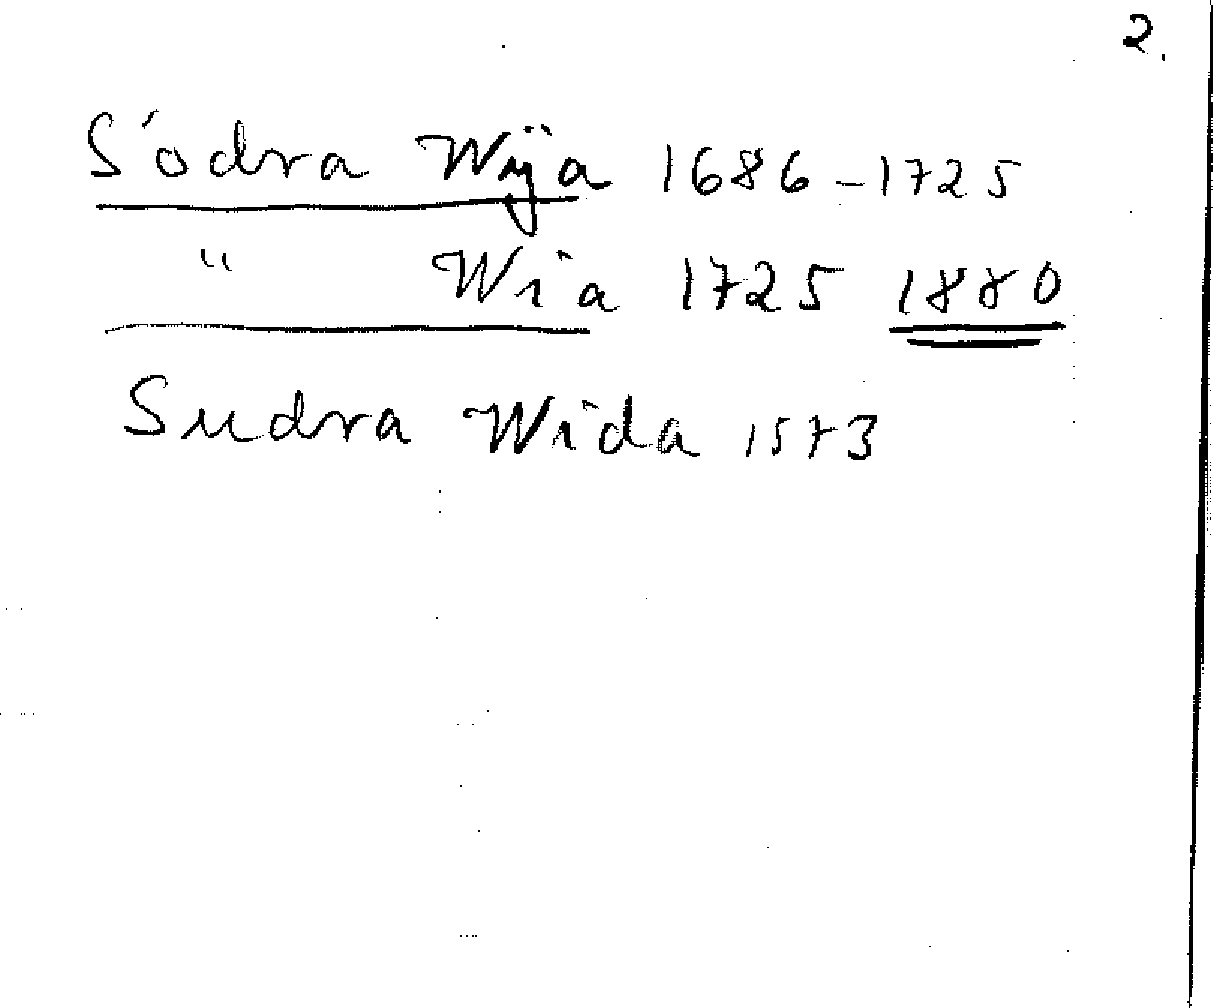 2.
Södra Wÿa 1686-1725
" Wia 1725 1880
Sudra Wida 1573